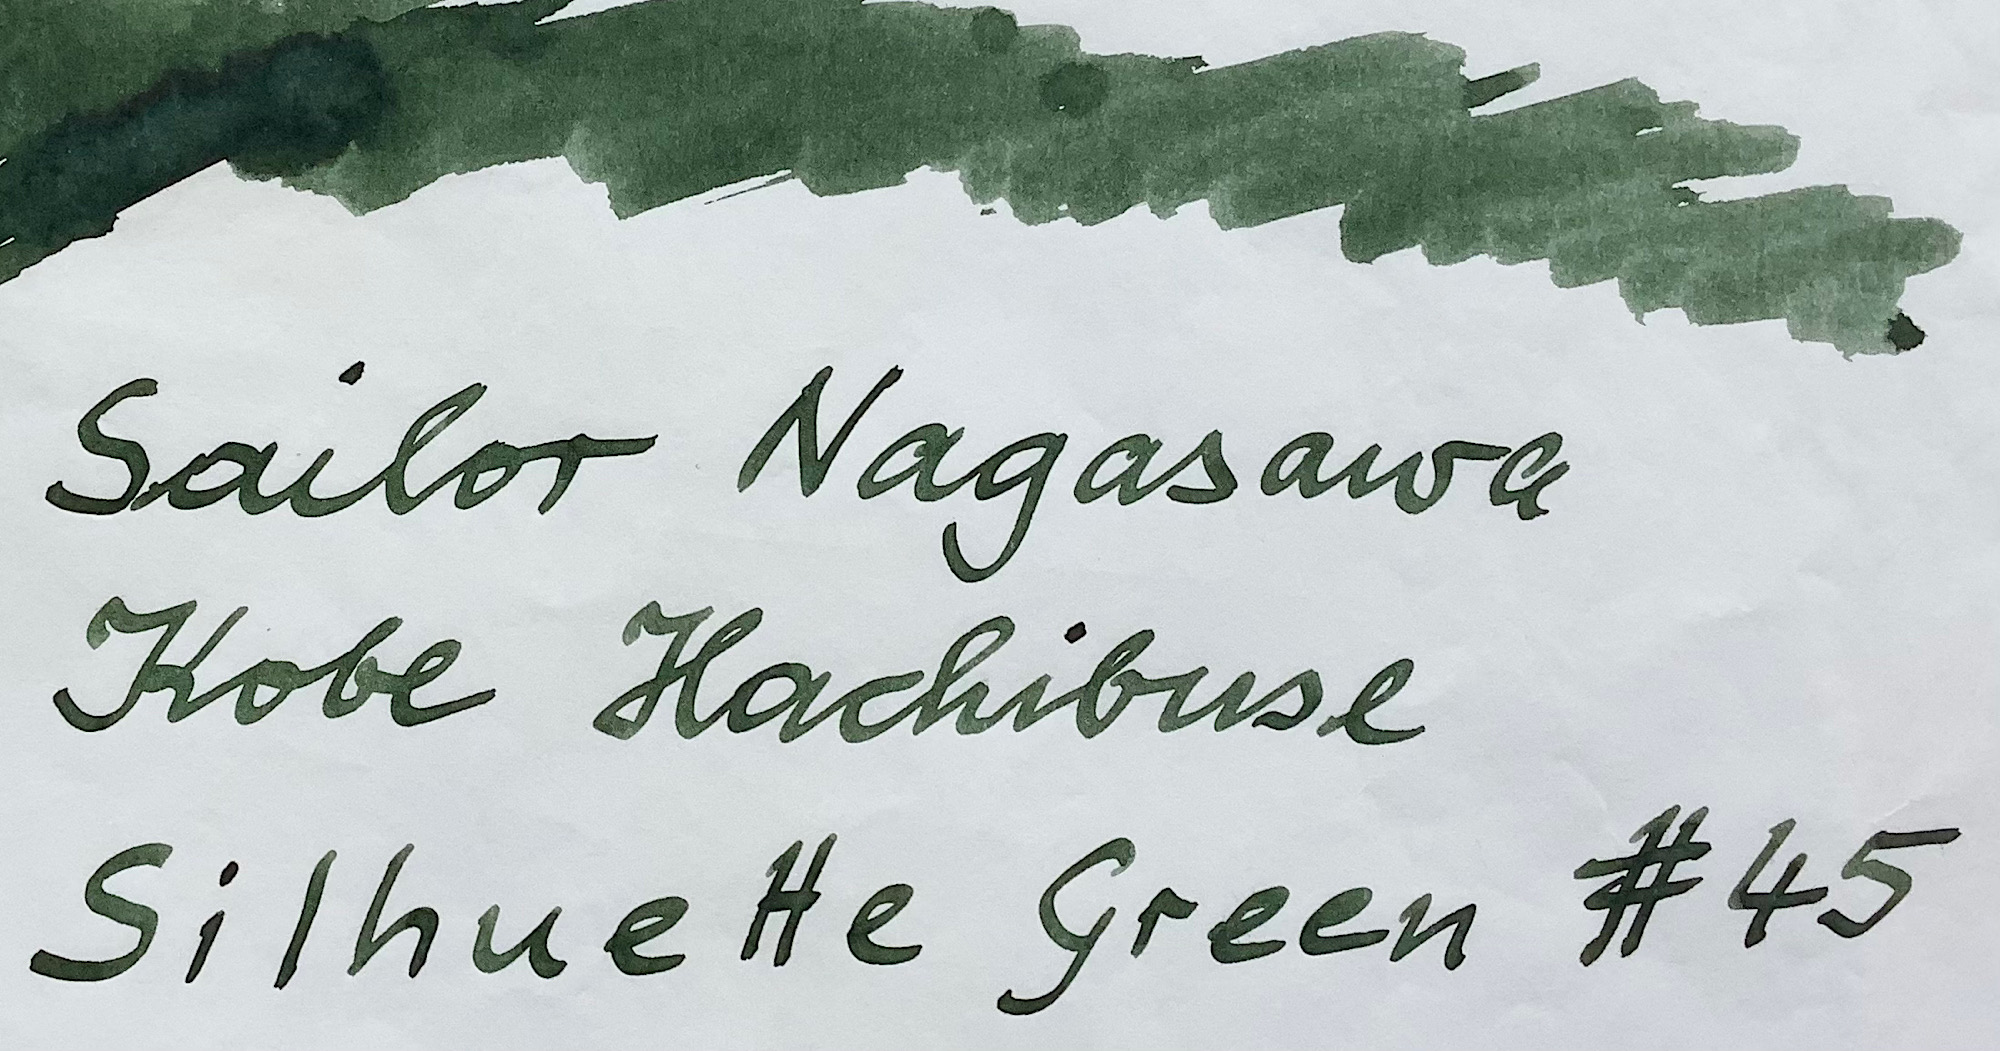 Sailor Nagasawa
Kobe Hachibuse
Silhuette Green #45